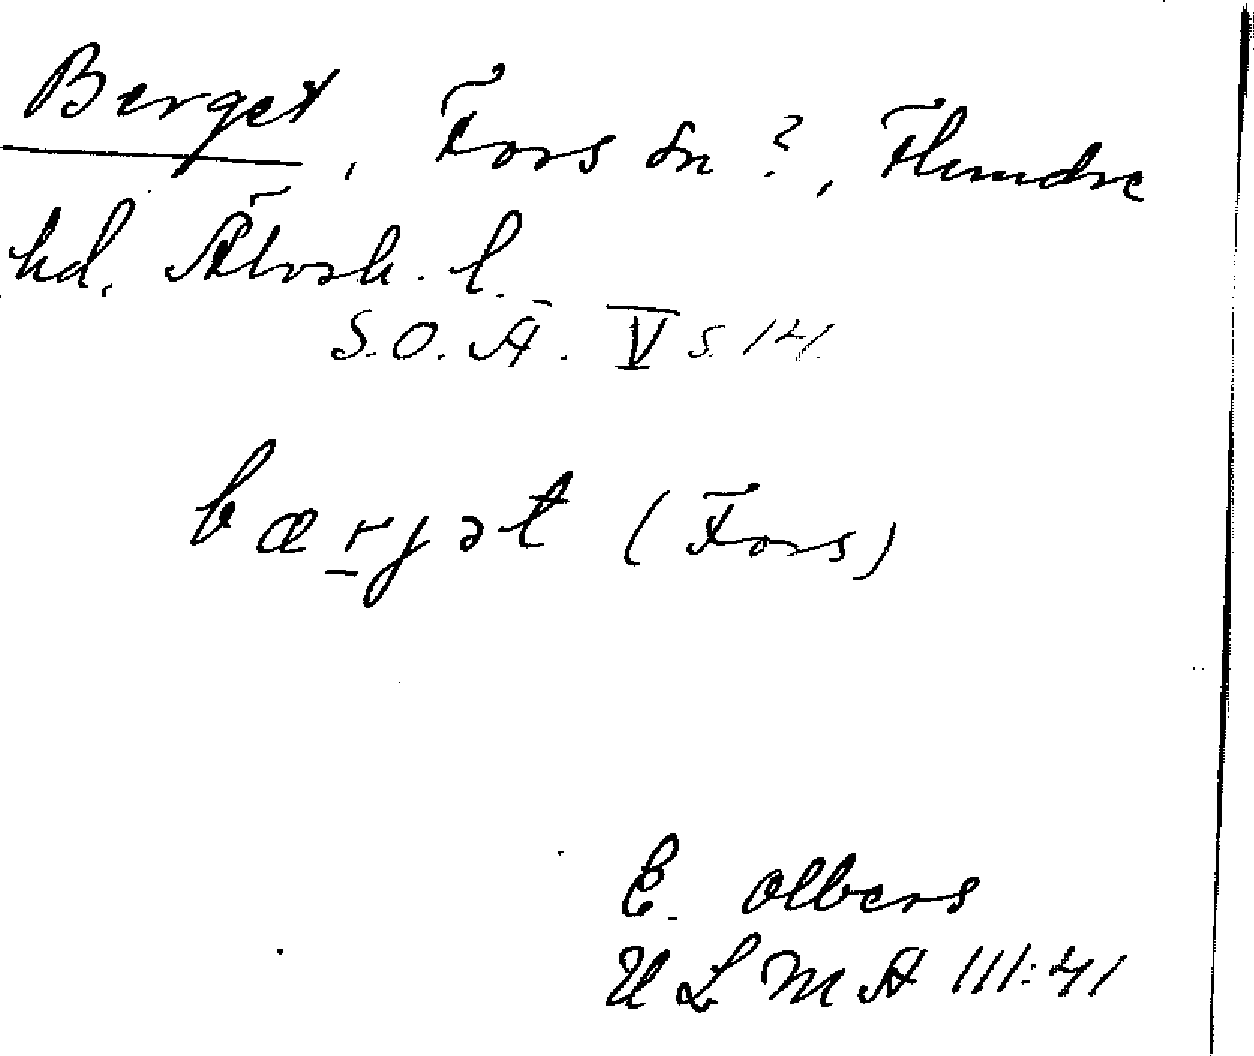 Berget, Fors sn?, Flundre
hd. Älvsb. l.
S.O.Ä. V s. 141.
bærjət (Fors)
E. Olbers
ULMA 111:41